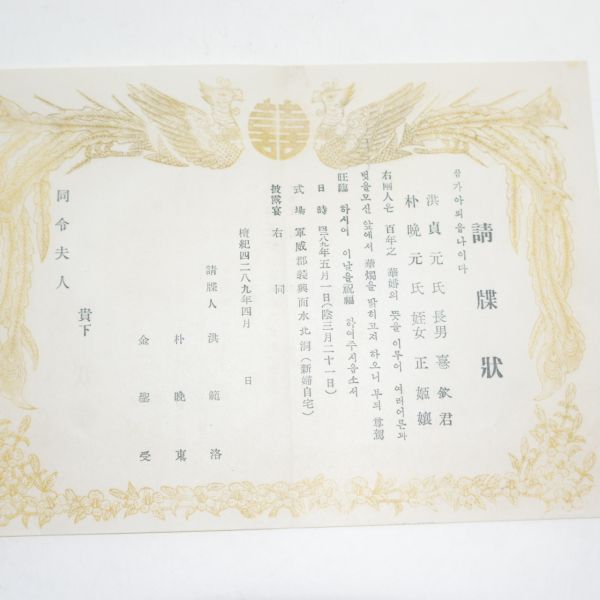 請牒狀
삼가아뢰옵나이다
洪貞元氏長男憙欽君
朴晚元氏姪女正姬孃
右兩人은 百年之 華婚의 뜻을 이루어 여러어른과
벗을모신 앞에서 華燭을 밝히고저 하오니 부듸 尊駕
旺臨 하시어 이날을祝福 하여주시옵소서
日時 四二八九年五月一日(陰三月二十一日)
式場 軍威郡裝興面水北洞(新婦自宅)
披露宴 右同
檀紀四二八九年四月 日
請牒人 洪範洛
朴晚東
金聖受
同令夫人 貴下